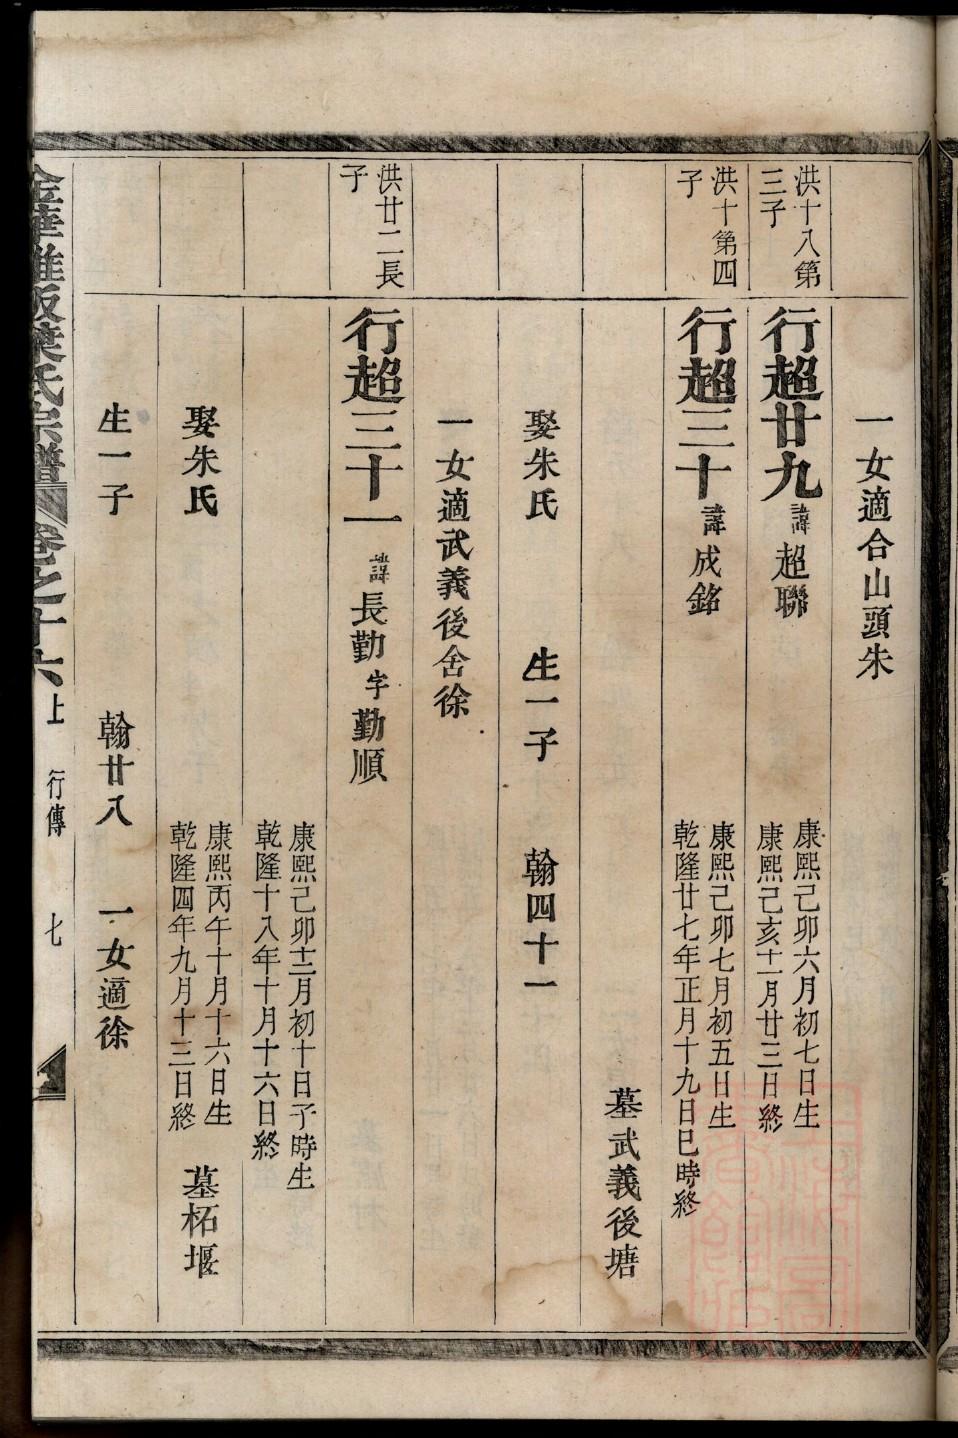 一女適合山頭朱
洪十八第三子
行超廿九 諱超聯
康熙己卯六月初七日生
康熙己亥十一月廿三日終
洪十第四子
行超三十 諱成銘
康熙己卯七月初五日生
乾隆廿七年正月十九日巳時終
墓武義後塘
娶朱氏 生一子 翰四十一
一女適武義後舍徐
洪廿二長子
行超三十一 諱長勤字勤順
康熙己卯十二月初十日子時生
乾隆十八年十月十六日終
娶朱氏
康熙丙午十月十六日生
乾隆四年九月十三日終
墓柘堰
生一子 翰廿八 一女適徐
葉氏宗譜 卷之十六上 行傳 七